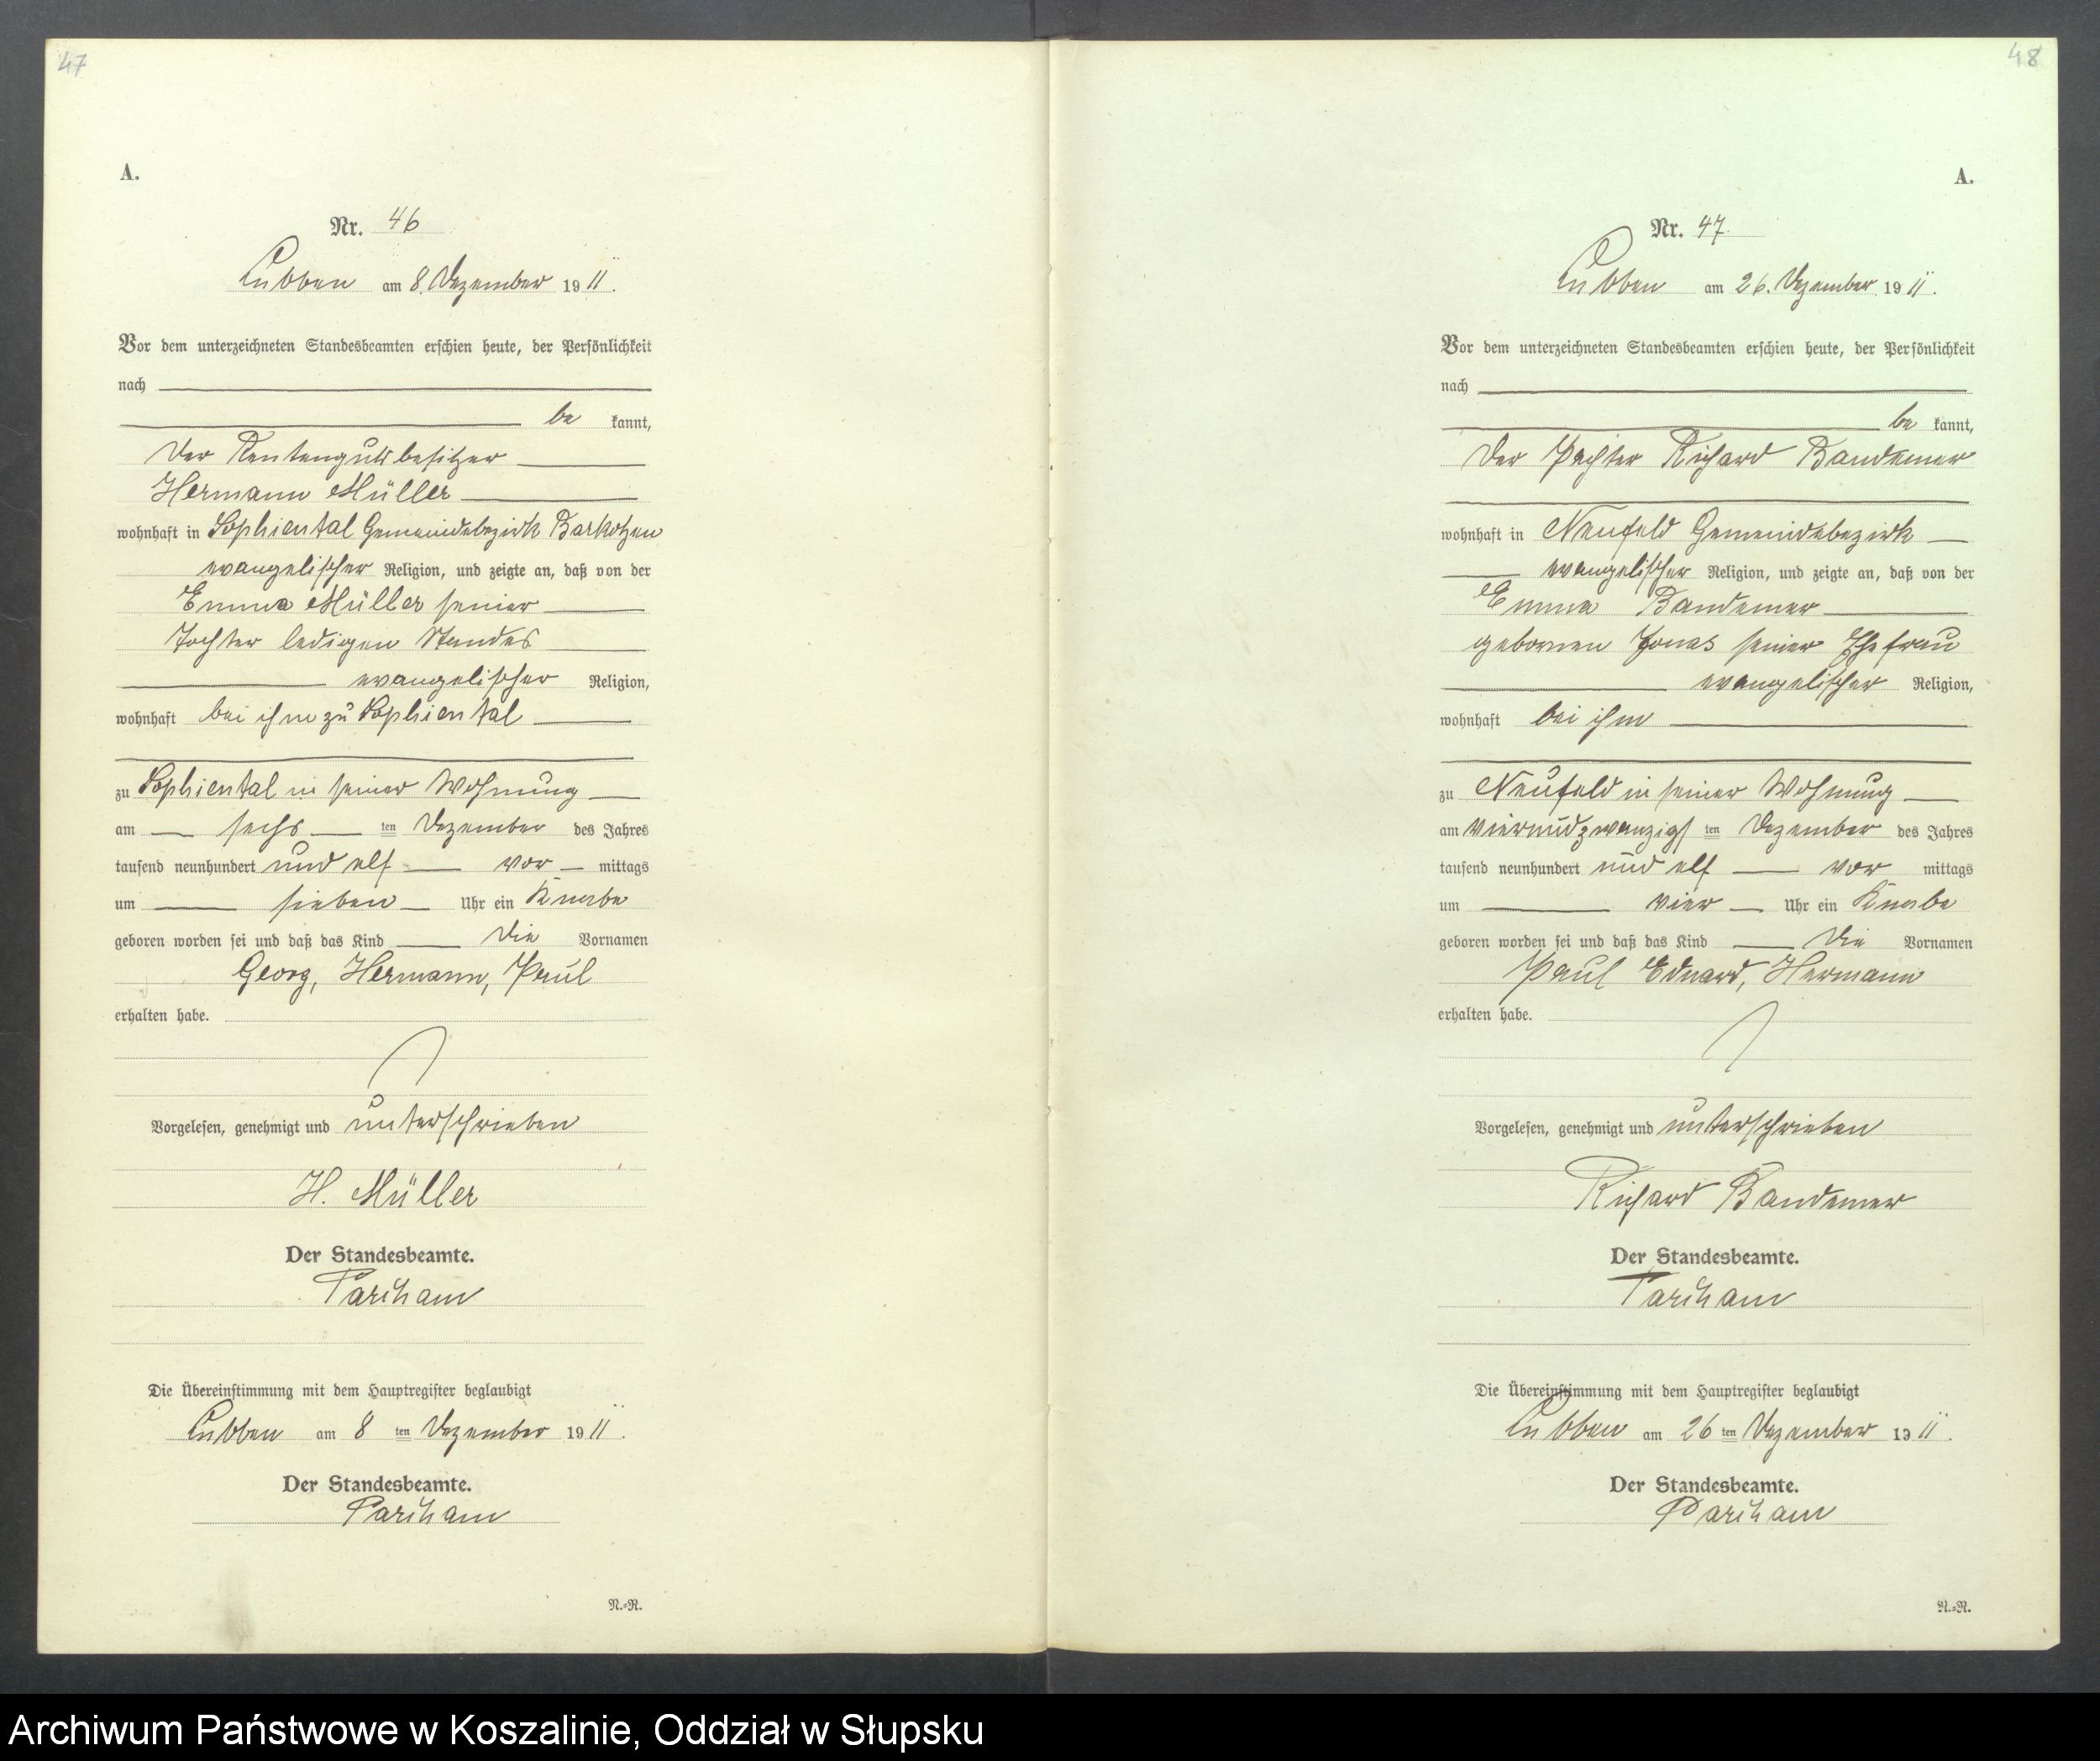 47
A.
Nr. 46
Lubben am 8. Dezember 1911.
Vor dem unterzeichneten Standesbeamten erschien heute, der Persönlichkeit
nach
be kannt,
der Rentengutsbesitzer
Hermann Müller
wohnhaft in Sophiental Gemeindebezirk Barkotzen
evangelischer Religion, und zeigte an, daß von der
Emma Müller seiner
Tochter ledigen Standes
evangelischer Religion,
wohnhaft bei ihm zu Sophiental
zu Sophiental in seiner Wohnung
am sechs ten Dezember des Jahres
tausend neunhundert und elf vor mittags
um sieben Uhr ein Knabe
geboren worden sei und daß das Kind die Vornamen
Georg, Hermann, Paul
erhalten habe.
Vorgelesen, genehmigt und unterschrieben
H. Müller
Der Standesbeamte.
Die Übereinstimmung mit dem Hauptregister beglaubigt
Lubben am 8 ten Dezember 1911.
Der Standesbeamte.
N.-R.
48
A.
Nr. 47.
Lubben am 26. Dezember 1911.
Vor dem unterzeichneten Standesbeamten erschien heute, der Persönlichkeit
nach
be kannt,
der Pächter Richard Bandemer
wohnhaft in Neufeld Gemeindebezirk
evangelischer Religion, und zeigte an, daß von der
Emma Bandemer
gebornen Jonas seiner Ehefrau
evangelischer Religion,
wohnhaft bei ihm
zu Neufeld in seiner Wohnung
am vierundzwanzigs ten Dezember des Jahres
tausend neunhundert und elf vor mittags
um vier Uhr ein Knabe
geboren worden sei und daß das Kind die Vornamen
Paul Eduard, Hermann
erhalten habe.
Vorgelesen, genehmigt und unterschrieben
Richard Bandemer
Der Standesbeamte.
Die Übereinstimmung mit dem Hauptregister beglaubigt
Lubben am 26 ten Dezember 1911.
Der Standesbeamte.
N.-R.
Archiwum Państwowe w Koszalinie, Oddział w Słupsku